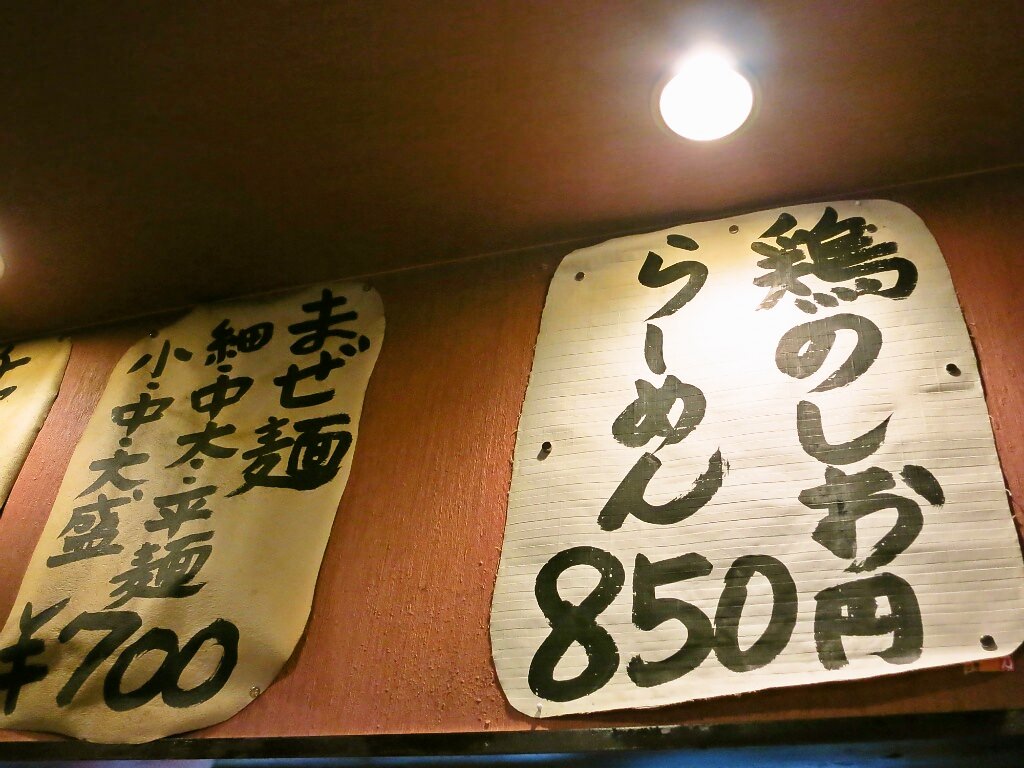 鶏のしお
らーめん
850円
まぜ麺
細・中太・平麺
小・中・大盛
¥700